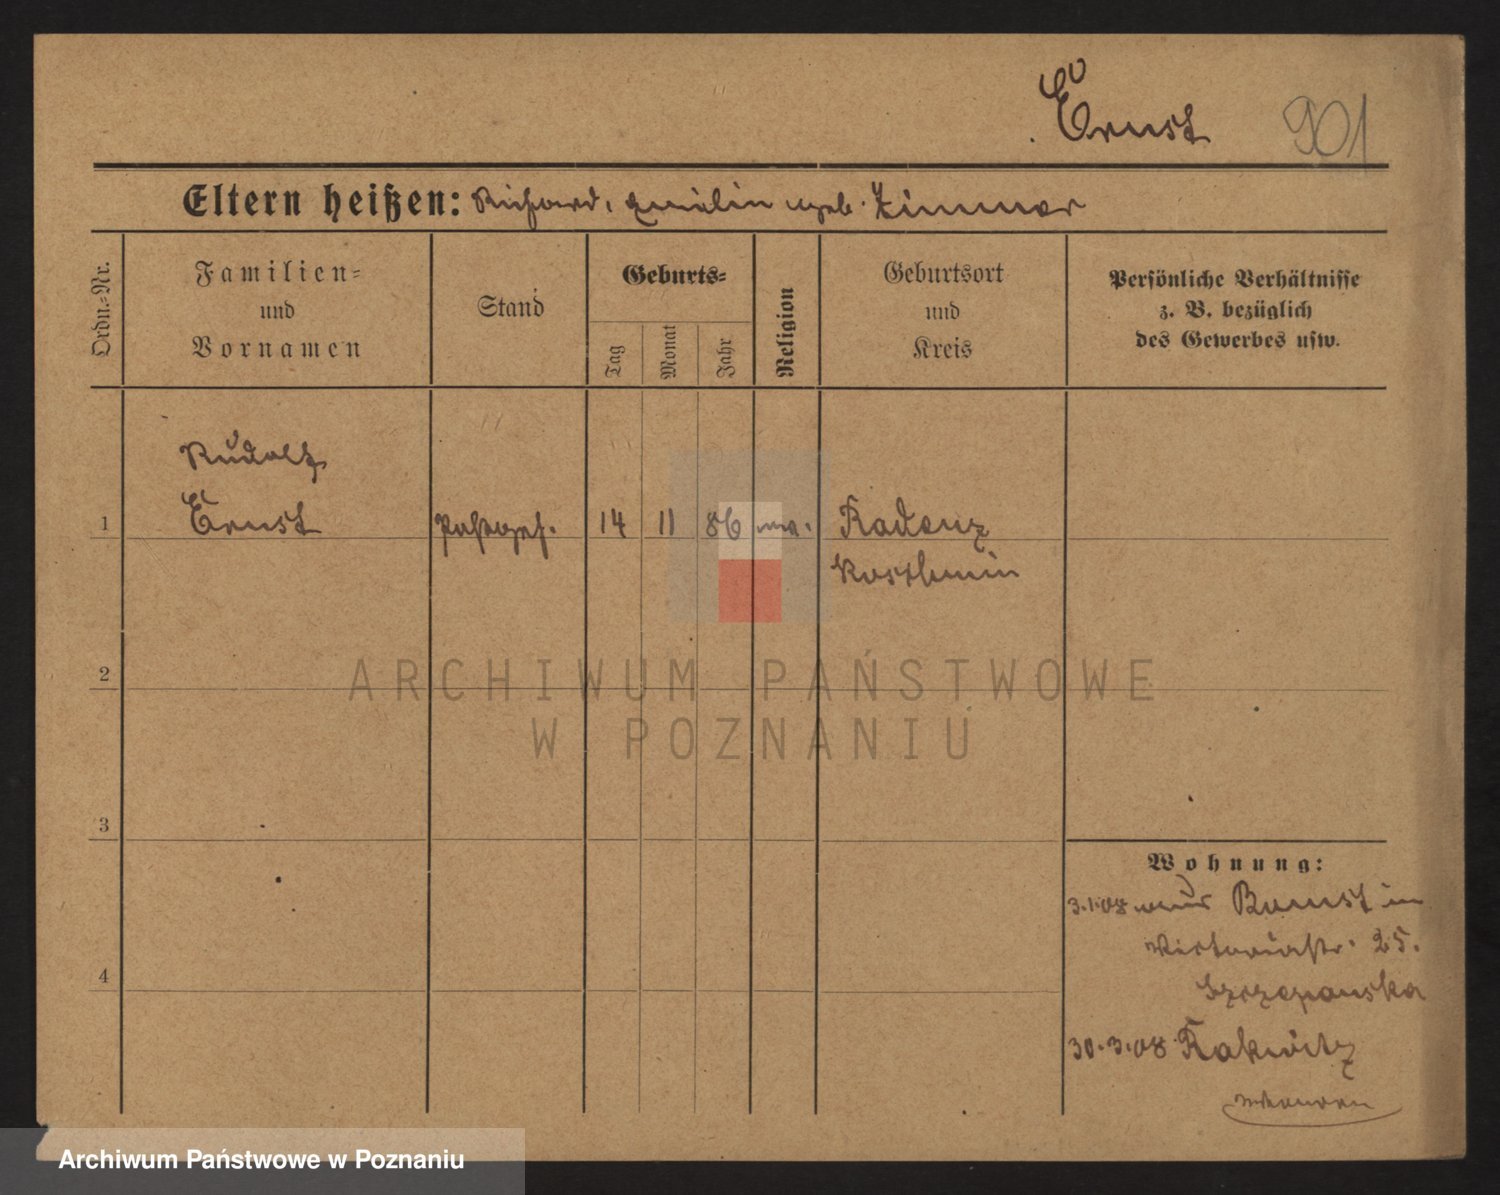 Ernst 901
Eltern heißen: Richard, geb. Zimmer
Ordn.-Nr.
Familien-
und
Vornamen
Stand
Geburts-
Tag
Monat
Jahr
Religion
Geburtsort
und
Kreis
Persönliche Verhältnisse
z. B. bezüglich
des Gewerbes usw.
Rudolf
1 Ernst 14 11 86 Radenz
Koschmin
2
3
4
Wohnung:
3.1.08 aus Bomst in
Viktoriastr. 25.
Szczepanska
30.3.08 Rakwitz
ARCHIWUM PAŃSTWOWE
W POZNANIU
Archiwum Państwowe w Poznaniu